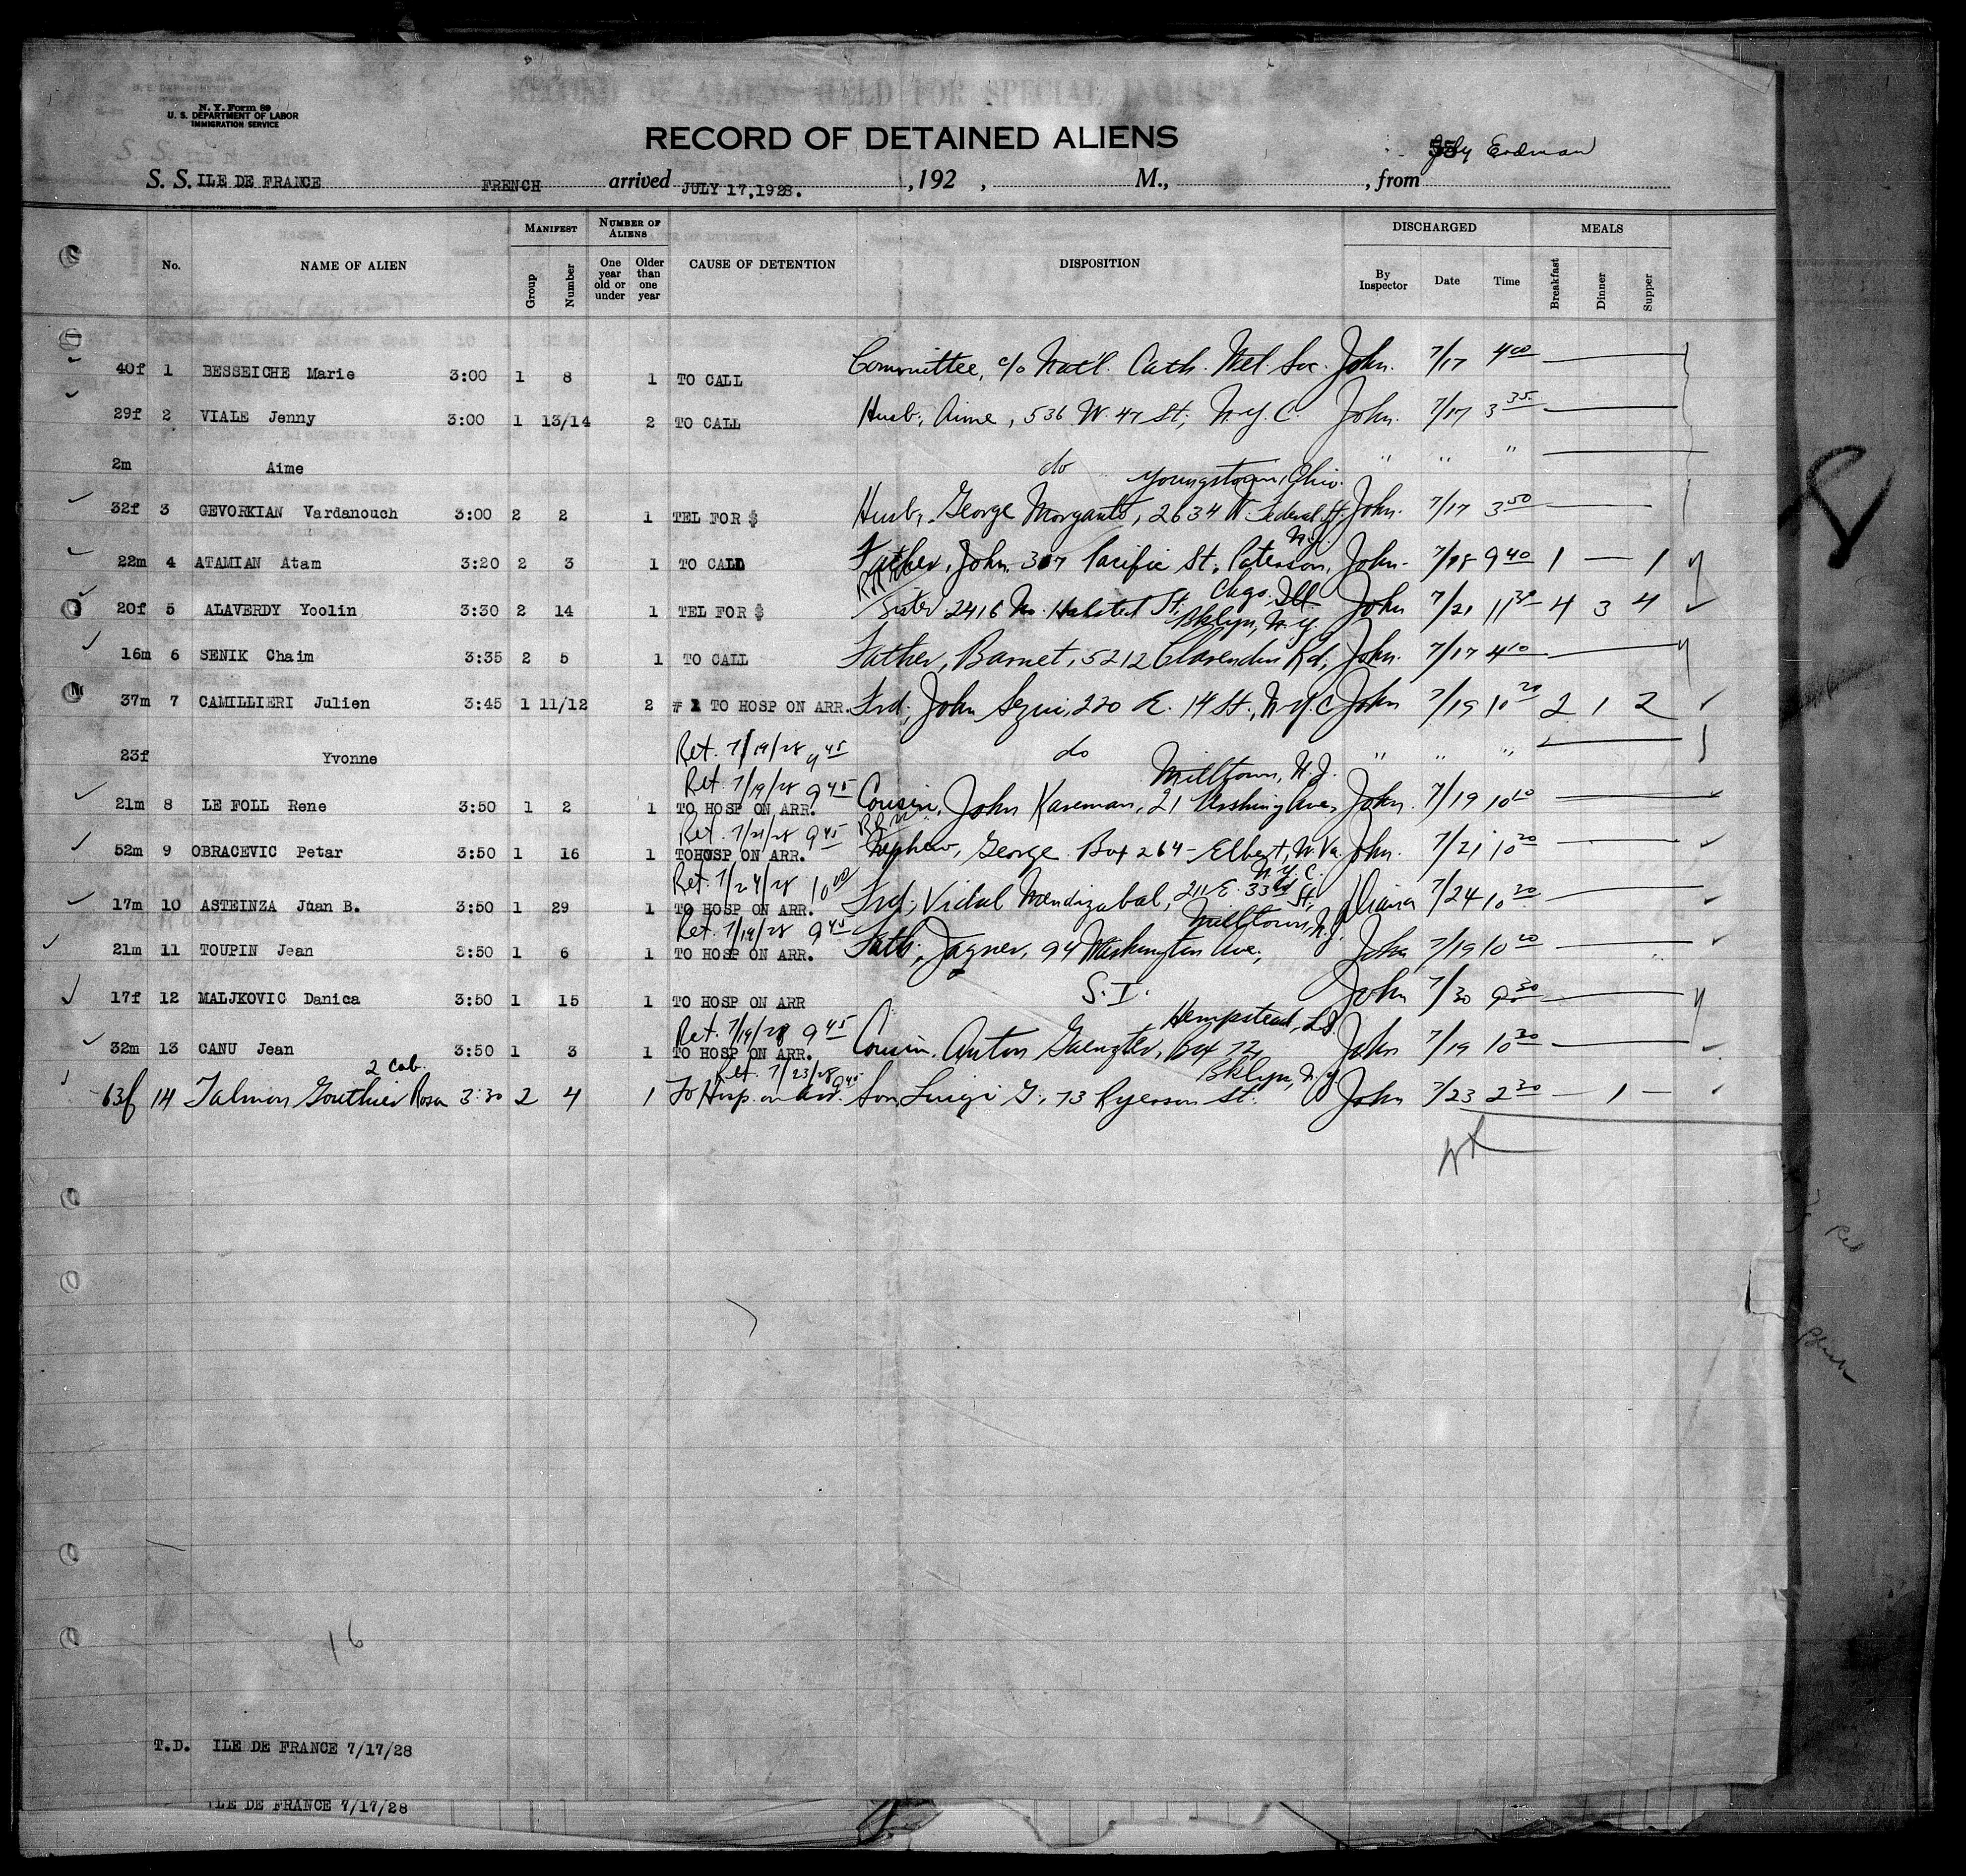 N. Y. Form 89
U. S. DEPARTMENT OF LABOR
IMMIGRATION SERVICE
RECORD OF DETAINED ALIENS
Erdman
S. S. ILE DE FRANCE FRENCH arrived JULY 17,1928. , 192 , M., , from
No. NAME OF ALIEN MANIFEST Group Number NUMBER OF ALIENS One year old or under Older than one year CAUSE OF DETENTION DISPOSITION DISCHARGED By Inspector Date Time MEALS Breakfast Dinner Supper
40f 1 BESSEICHE Marie 3:00 1 8 1 TO CALL Committee, c/o Nat'l. Cath. Wel. Soc. John. 7/17 4 00
29f 2 VIALE Jenny 3:00 1 13/14 2 TO CALL Husb, Aime, 536 W. 47 St, N.Y.C. John. 7/17 3 35
2m Aime do " " "
Youngstown, Ohio.
32f 3 GEVORKIAN Vardanouch 3:00 2 2 1 TEL FOR $ Husb, George Morganto, 2634 W. Federal St John. 7/17 3 50
N.J.
22m 4 ATAMIAN Atam 3:20 2 3 1 TO CALL Father, John, 307 Pacific St, Paterson, John. 7/18 9 40 1 — 1
Chgo, Ill.
20f 5 ALAVERDY Yoolin 3:30 2 14 1 TEL FOR $ Sister 2416 No. Halsted St, John 7/21 11 30 4 3 4
Bklyn, N.Y.
16m 6 SENIK Chaim 3:35 2 5 1 TO CALL Father, Barnet, 5212 Clarendon Rd, John. 7/17 4 10
37m 7 CAMILLIERI Julien 3:45 1 11/12 2 # 1 TO HOSP ON ARR. Frd, John 220 E. 14 St., N.Y.C John 7/19 10 20 2 1 2
Ret. 7/19/28 9 45
23f Yvonne do " " "
Ret. 7/19/28 9 45 Milltown, N.J.
21m 8 LE FOLL Rene 3:50 1 2 1 TO HOSP ON ARR. Cousin, John Kareman, 21 Ave, John. 7/19 10 10
Ret. 7/21/28 9 45
52m 9 OBRACEVIC Petar 3:50 1 16 1 TO HOSP ON ARR. Nephew, George Box 264 - Elbert, W. Va. John. 7/21 10 20
Ret. 7/24/28 10 00 N.Y.C.
17m 10 ASTEINZA Juan B. 3:50 1 29 1 TO HOSP ON ARR. Frd, Vidal Mendizabal, 211 E. 33rd St, 7/24 10 20
Ret. 7/19/28 9 45 Milltown, N.J.
21m 11 TOUPIN Jean 3:50 1 6 1 TO HOSP ON ARR. Fath, Jagner, 94 Washington Ave, John 7/19 10 20
17f 12 MALJKOVIC Danica 3:50 1 15 1 TO HOSP ON ARR S.I. John 7/30 9 30
Ret. 7/19/28 9 45 Hempstead, L.I.
32m 13 CANU Jean 3:50 1 3 1 TO HOSP ON ARR. Cousin, Anton Box 72, John 7/19 10 30
2 Cab. Ret. 7/23/28 9 45 Bklyn, N.Y
63f 14 Talmon Gouthier Rosa 3:30 2 4 1 To Hosp. on arr. Son, Luigi G., 73 Ryerson St. John 7/23 2 30 — 1 —
16
T.D. ILE DE FRANCE 7/17/28
ILE DE FRANCE 7/17/28